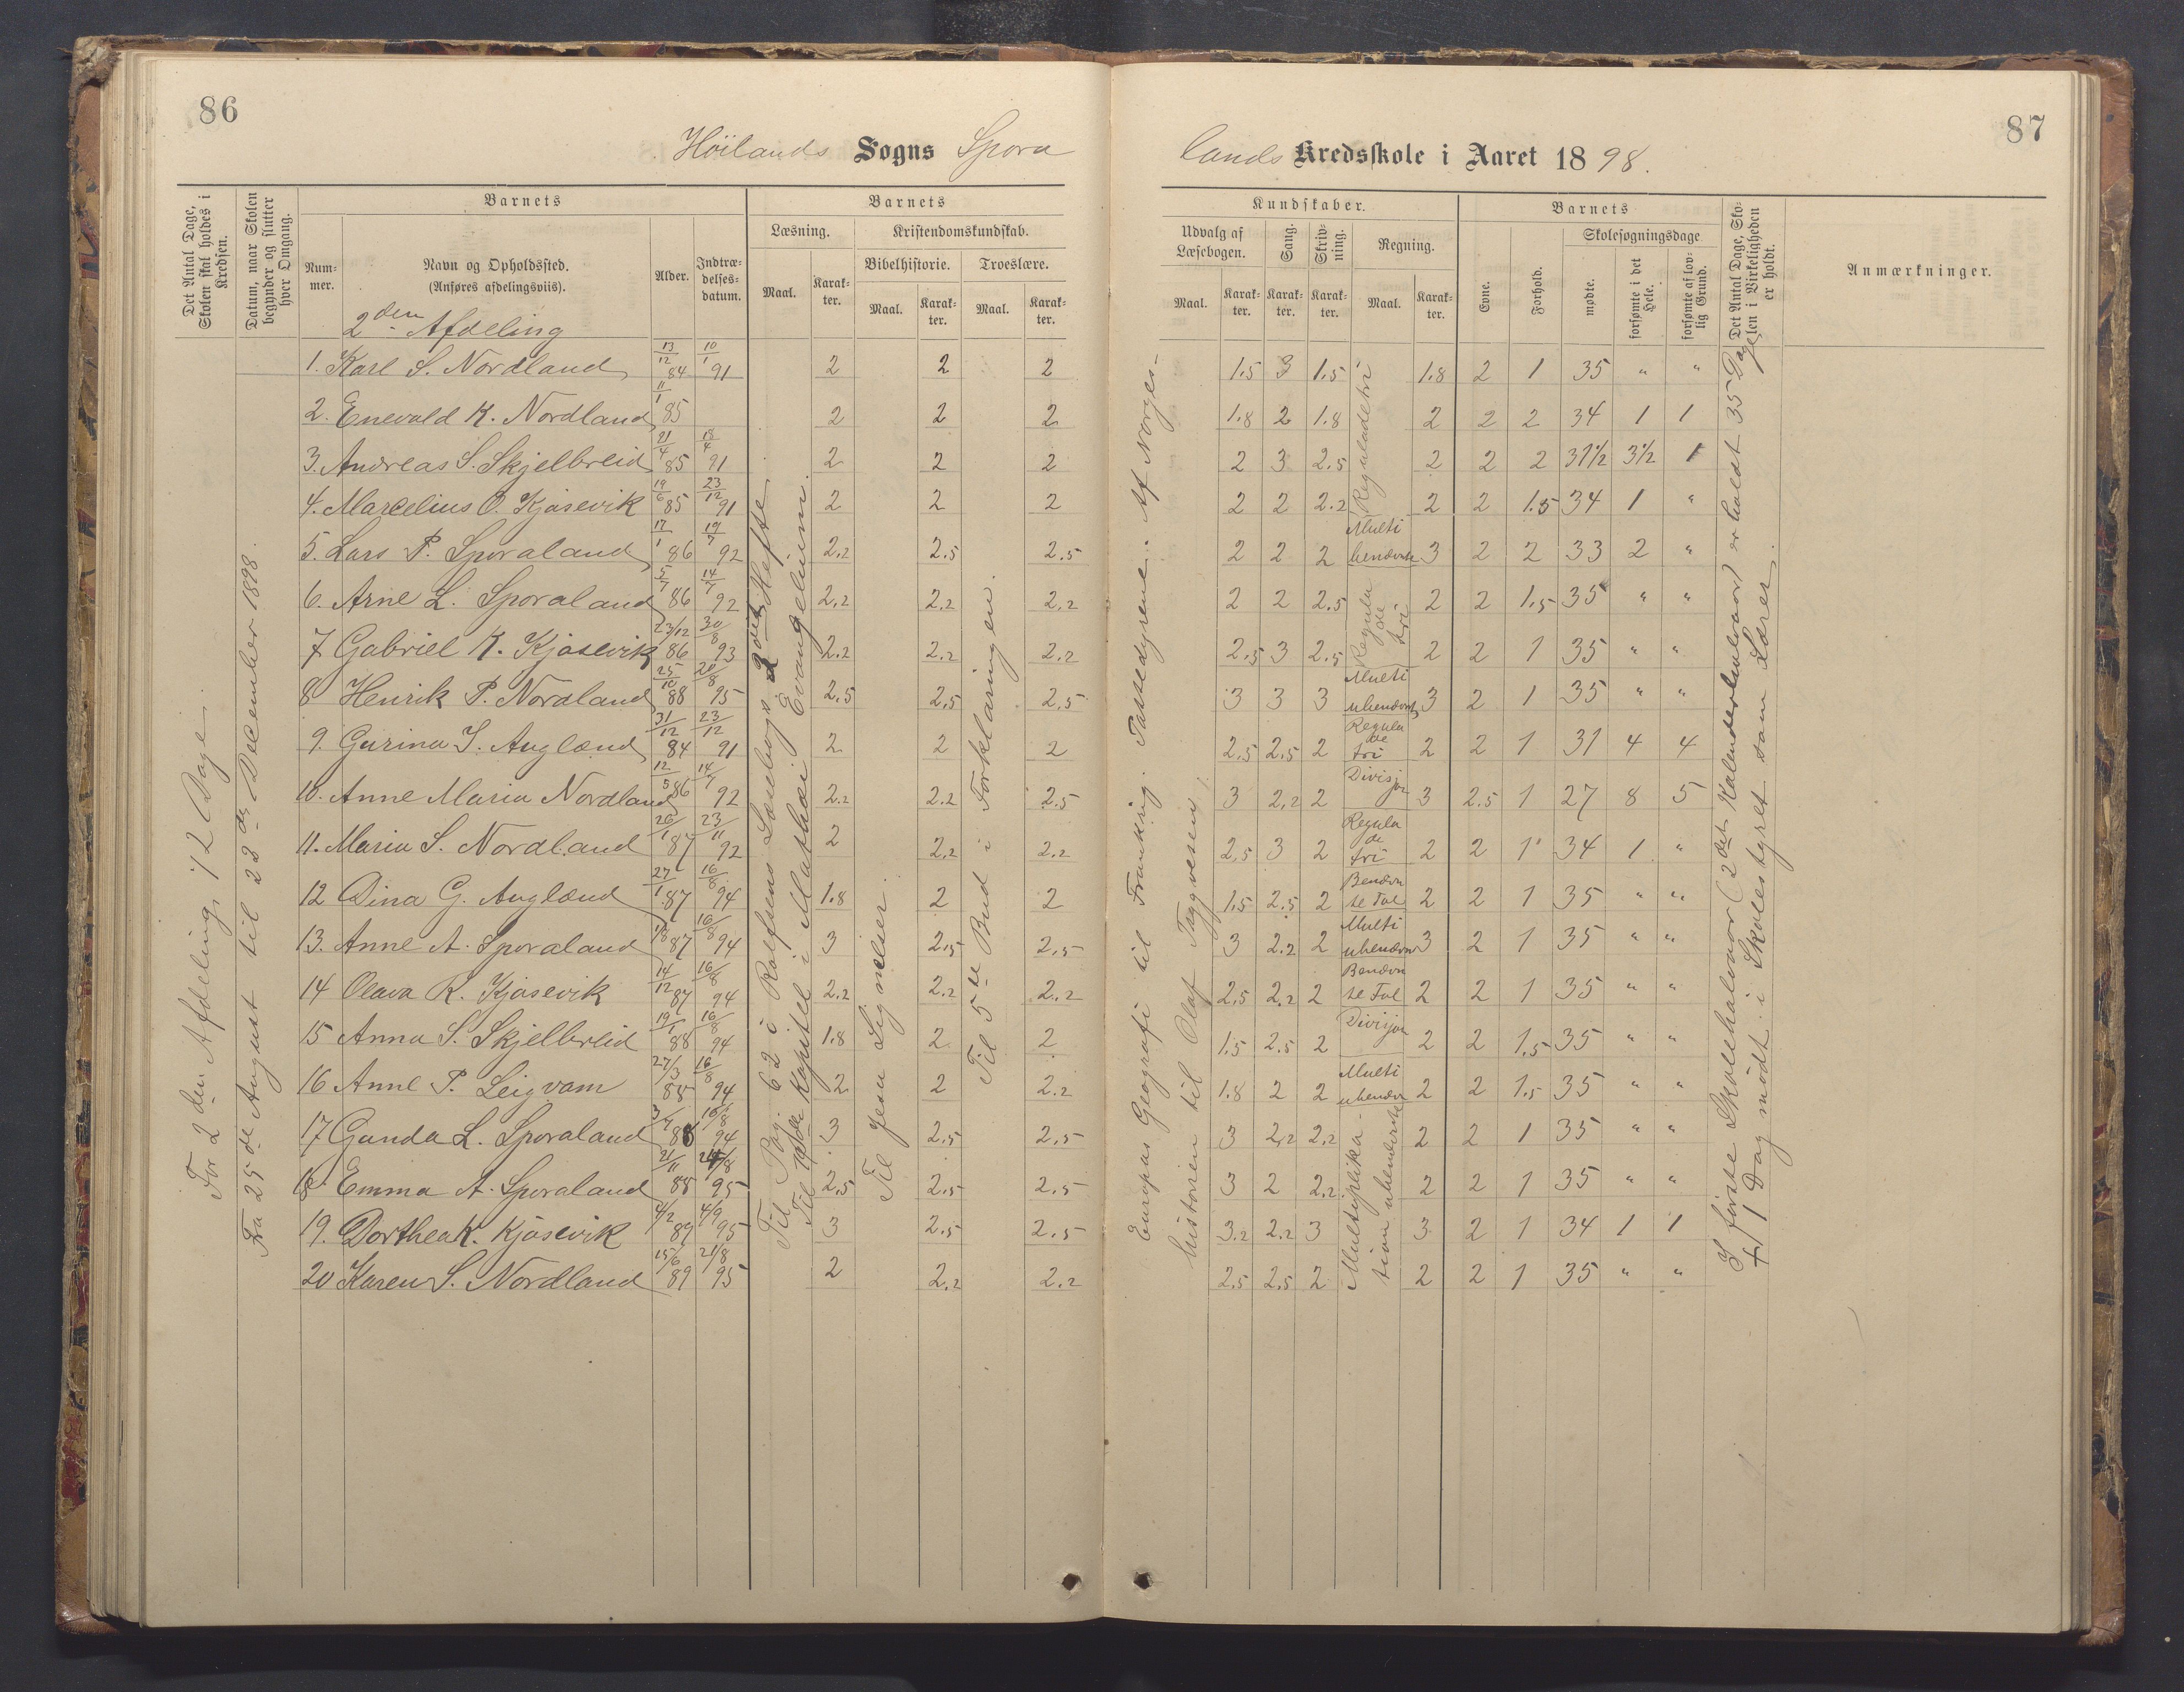 86
Höilands Sogns Spora
Det Antal Dage, Skolen skal holdes i Kredsen.
Datum, naar Skolen begynder og slutter hver Omgang.
Barnets
Barnets
Num-
mer.
Navn og Opholdssted.
(Anføres afdelingsviis).
Alder.
Indtræ-
delses-
datum.
Læsning.
Kristendomskundskab.
Maal.
Karak-
ter.
Bibelhistorie.
Troeslære.
Maal.
Karak-
ter.
Maal.
Karak-
ter.
2den Afdeling
For 2den Afdeling, 72 Dage.
Fra 25de August til 22de December 1898.
Til Pag. 62 i Rolfsens Læsebogs 2det Hefte
Til Kapitel i Mathæi Evangelium.
Til Jesu Lignelser.
Til 5te Bud i Forklaringen.
1. Karl S. Nordland 13/12 84 10/1 91 2 2 2
2. Enevald K. Nordland 11/1 85 2 2 2
3. Andreas S. Skjelbreid 21/4 85 18/4 91 2 2 2
4. Marcelius O. Kjosevik 19/6 85 23/12 91 2 2 2
5. Lars P. Sporaland 17/1 86 19/7 92 2.2 2.5 2.5
6. Arne L. Sporaland 5/7 86 14/7 92 2.2 2.2 2.2
7 Gabriel K. Kjosevik 23/12 86 30/8 93 2.2 2.2 2.2
8 Henrik P. Nordland 25/10 88 20/8 95 2.5 2.5 2.5
9. Gurina I. Auglænd 31/12 84 23/12 91 2 2 2
10. Anne Maria Nordland 12/5 86 14/7 92 2.2 2.2 2.5
11. Maria S. Nordland 26/1 87 23/11 92 2 2.2 2.2
12 Dina G. Auglænd 27/1 87 16/8 94 1.8 2 2
13. Anne A. Sporaland 1/8 87 16/8 94 3 2.5 2.5
14 Olava K. Kjosevik 14/12 87 16/8 94 2.2 2.2 2.2
15 Anna S. Skjelbreid 19/1 88 16/8 94 1.8 2 2
16 Anne P. Leigvam 27/3 88 16/8 94 2 2 2.2
17 Gunda L. Sporaland 88 16/8 94 3 2.5 2.5
18 Emma A. Sporaland 21/11 88 95 2.5 2.5 2.5
19. Dorthea K. Kjosevik 4/2 89 4/9 95 3 2.5 2.5
20 Karen S. Nordland 15/6 89 21/8 95 2 2.2 2.2
87
lands Kredsskole i Aaret 1898.
Kundskaber.
Barnets
Udvalg af
Læsebogen.
Sang.
Skriv-
ning.
Regning.
Maal.
Karak-
ter.
Karak-
ter.
Karak-
ter.
Maal.
Karak-
ter.
Evne.
Forhold.
Skolesøgningsdage
mødte.
forsømte i det Hele.
forsømte af lov-
lig Grund.
Det Antal Dage, Sko-
len i Virkeligheden er holdt.
Anmærkninger.
Europas Geografi til Frankrig. Pattedyrene. Af Norges-
historien til Olaf Tryggvesen.
I første Skolehalvaar (2det Kalenderhalvaar) er holdt 35 Dage
+ 1 Dag mødt i Skolestyret som Lærer.
1.5 3 1.5 Reguladetri 1.8 2 1 35 " "
1.8 2 1.8 2 2 2 34 1 1
2 3 2.5 2 2 2 31½ 3½ 1
2 2 2.2 2 2 1.5 34 1 "
2 2 2 Multi benævnt 3 2 2 33 2 "
2 2 2.5 Regula de tri 2 2 1.5 35 " "
2.5 3 2.5 2 2 1 35 " "
3 3 3 Multi ubenævnt 3 2 1 35 " "
2.5 2.5 2 Regula de tri 2 2 1 31 4 4
3 2.2 2 Divisjon 3 2.5 1 27 8 5
2.5 3 2 Regula de tri 2 2 1 34 1 "
1.5 2.5 2 Benævn te Tal 2 2 1 35 " "
3 2.2 2 Multi ubenævn 3 2 1 35 " "
2.5 2.2 2 Benævn te Tal 2 2 1 35 " "
1.5 2.5 2 Divisjon 2 2 1.5 35 " "
1.8 2 2 Multi ubenævn 2 2 1.5 35 " "
3 2.2 2.2 Multiplika-
tion ubenævnte 2 2 1 35 " "
3 2 2.2 2 2 1 35 " "
3.2 2.2 3 3 2 1 34 1 1
2.5 2.5 2 2 2 1 35 " "